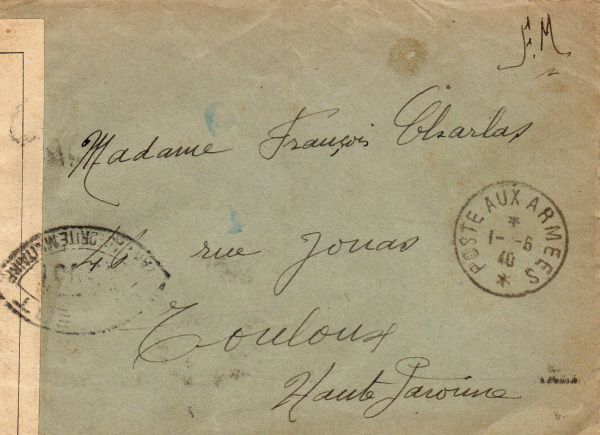 F.M
Madame François Charlas
46 rue Jonas
Toulouse
Haute Garonne
POSTE AUX ARMEES
1- -6
40
AUTORITE MILITAIRE